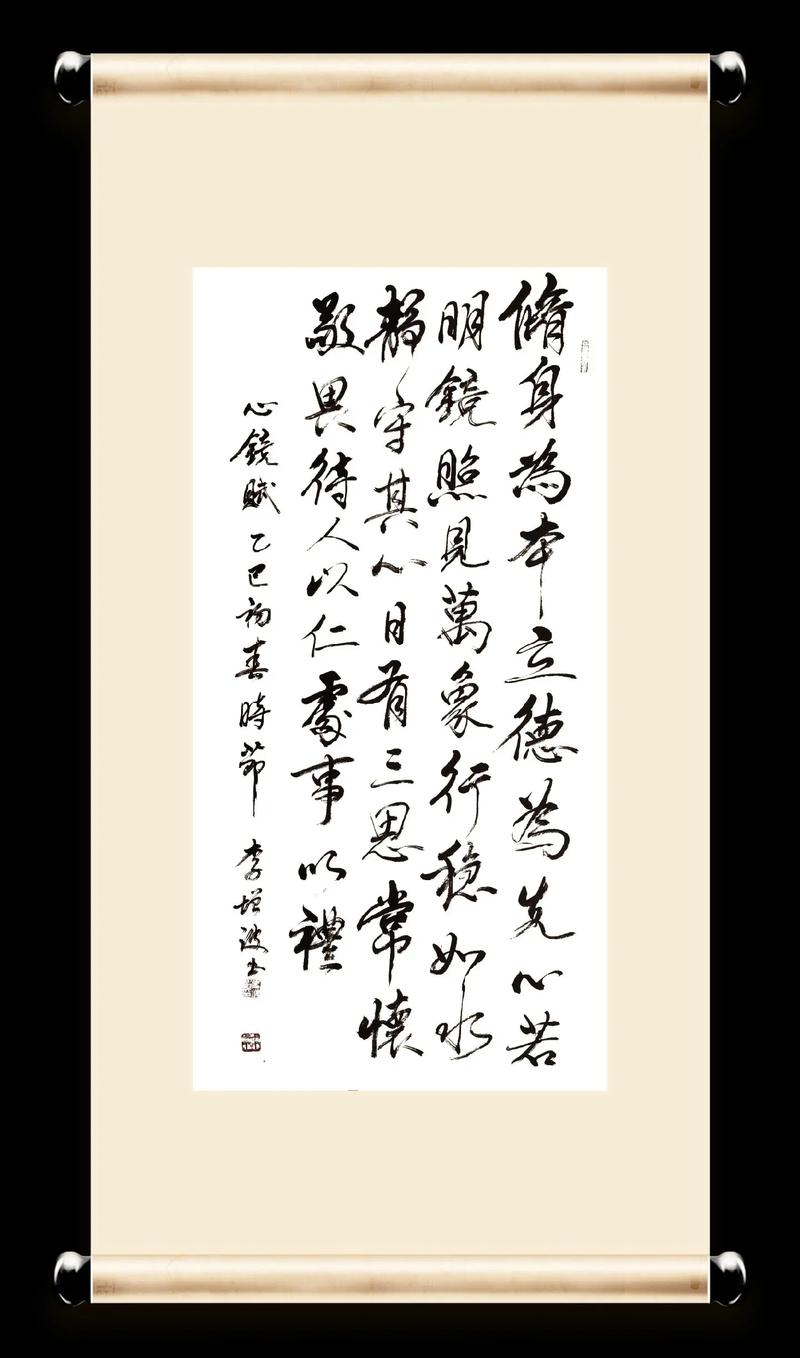 脩身為本立德為先心若
明鏡照見萬象行穩如水
靜守其心日有三思常懷
敬畏待人以仁處事以禮
心鏡賦乙巳初春時節李增波書